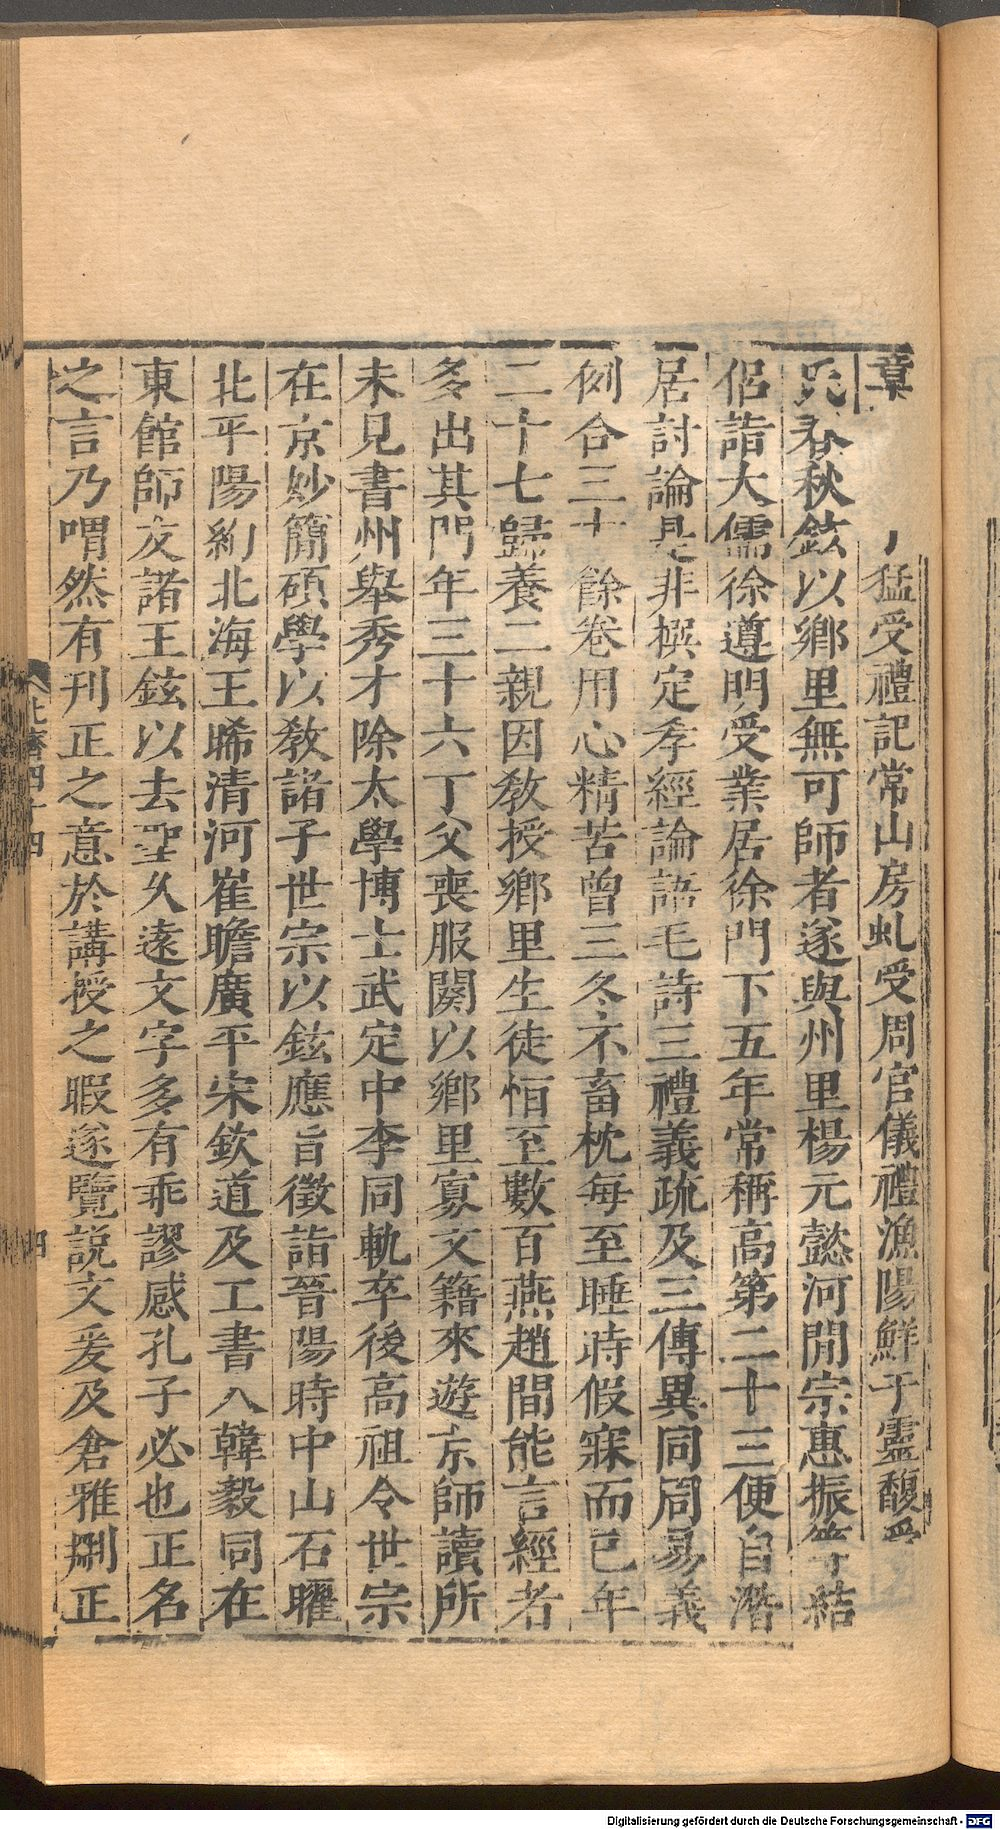 章猛受禮記常山房虬受周官儀禮漁陽鮮于靈馥受
氏春秋鉉以鄉里無可師者遂與州里楊元懿河閒宗惠振等結
侶詣大儒徐遵明受業居徐門下五年常稱高第二十三便自潛
居討論是非撰定孝經論語毛詩三禮義疏及三傳異同周易義
例合三十餘卷用心精苦曾三冬不畜枕每至睡時假寐而已年
二十七歸養二親因敎授鄉里生徒恒至數百燕趙間能言經者
多出其門年三十六丁父喪服闋以鄉里寡文籍來遊京師讀所
未見書州舉秀才除太學博士武定中李同軌卒後高祖令世宗
在京妙簡碩學以敎諸子世宗以鉉應旨徵詣晉陽時中山石曜
北平陽絢北海王晞清河崔瞻廣平宋欽道及工書人韓毅同在
東館師友諸王鉉以去聖久遠文字多有乖謬感孔子必也正名
之言乃喟然有刊正之意於講授之暇遂覽說文爰及倉雅刪正
北齊四十四
四
Digitalisierung gefördert durch die Deutsche Forschungsgemeinschaft - DFG